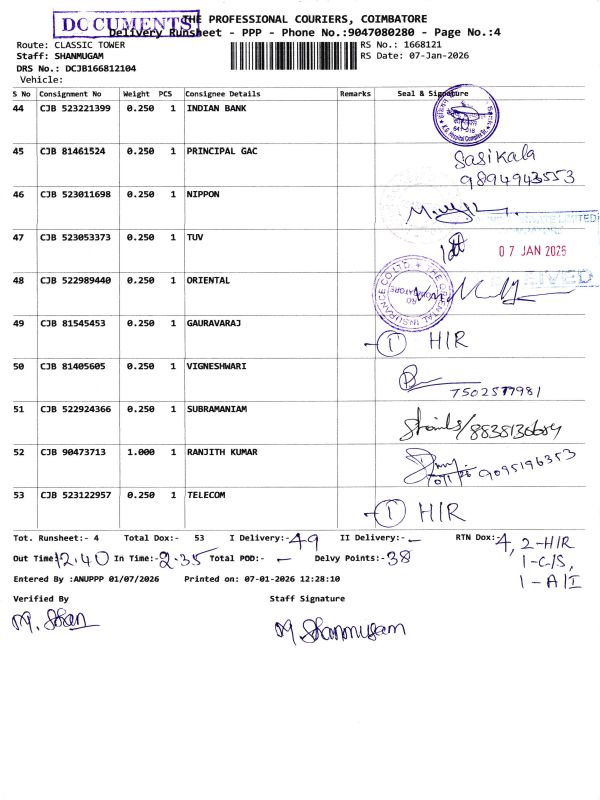 DOCUMENTS
THE PROFESSIONAL COURIERS, COIMBATORE
Delivery Runsheet - PPP - Phone No.:9047080280 - Page No.:4
Route: CLASSIC TOWER
RS No.: 1668121
Staff: SHANMUGAM
RS Date: 07-Jan-2026
DRS No.: DCJB166812104
Vehicle:
S No Consignment No Weight PCS Consignee Details Remarks Seal & Signature
44 CJB 523221399 0.250 1 INDIAN BANK
45 CJB 81461524 0.250 1 PRINCIPAL GAC
Sasikala
9894943553
46 CJB 523011698 0.250 1 NIPPON
47 CJB 523053373 0.250 1 TUV
07 JAN 2025
RECEIVED
48 CJB 522989440 0.250 1 ORIENTAL
THE ORIENTAL INSURANCE CO LTD
49 CJB 81545453 0.250 1 GAURAVARAJ
1 H/R
50 CJB 81405605 0.250 1 VIGNESHWARI
7502577981
51 CJB 522924366 0.250 1 SUBRAMANIAM
52 CJB 90473713 1.000 1 RANJITH KUMAR
9095196353
53 CJB 523122957 0.250 1 TELECOM
1 H/R
Tot. Runsheet:- 4 Total Dox:- 53 I Delivery:- 49 II Delivery:- - RTN Dox:- 4, 2-H/R
1-C/S,
1-A/I
Out Time:- 12.40 In Time:- 2.35 Total POD:- - Delvy Points:- 38
Entered By :ANUPPP 01/07/2026 Printed on: 07-01-2026 12:28:10
Verified By Staff Signature
M. Shan
M. Shanmugam